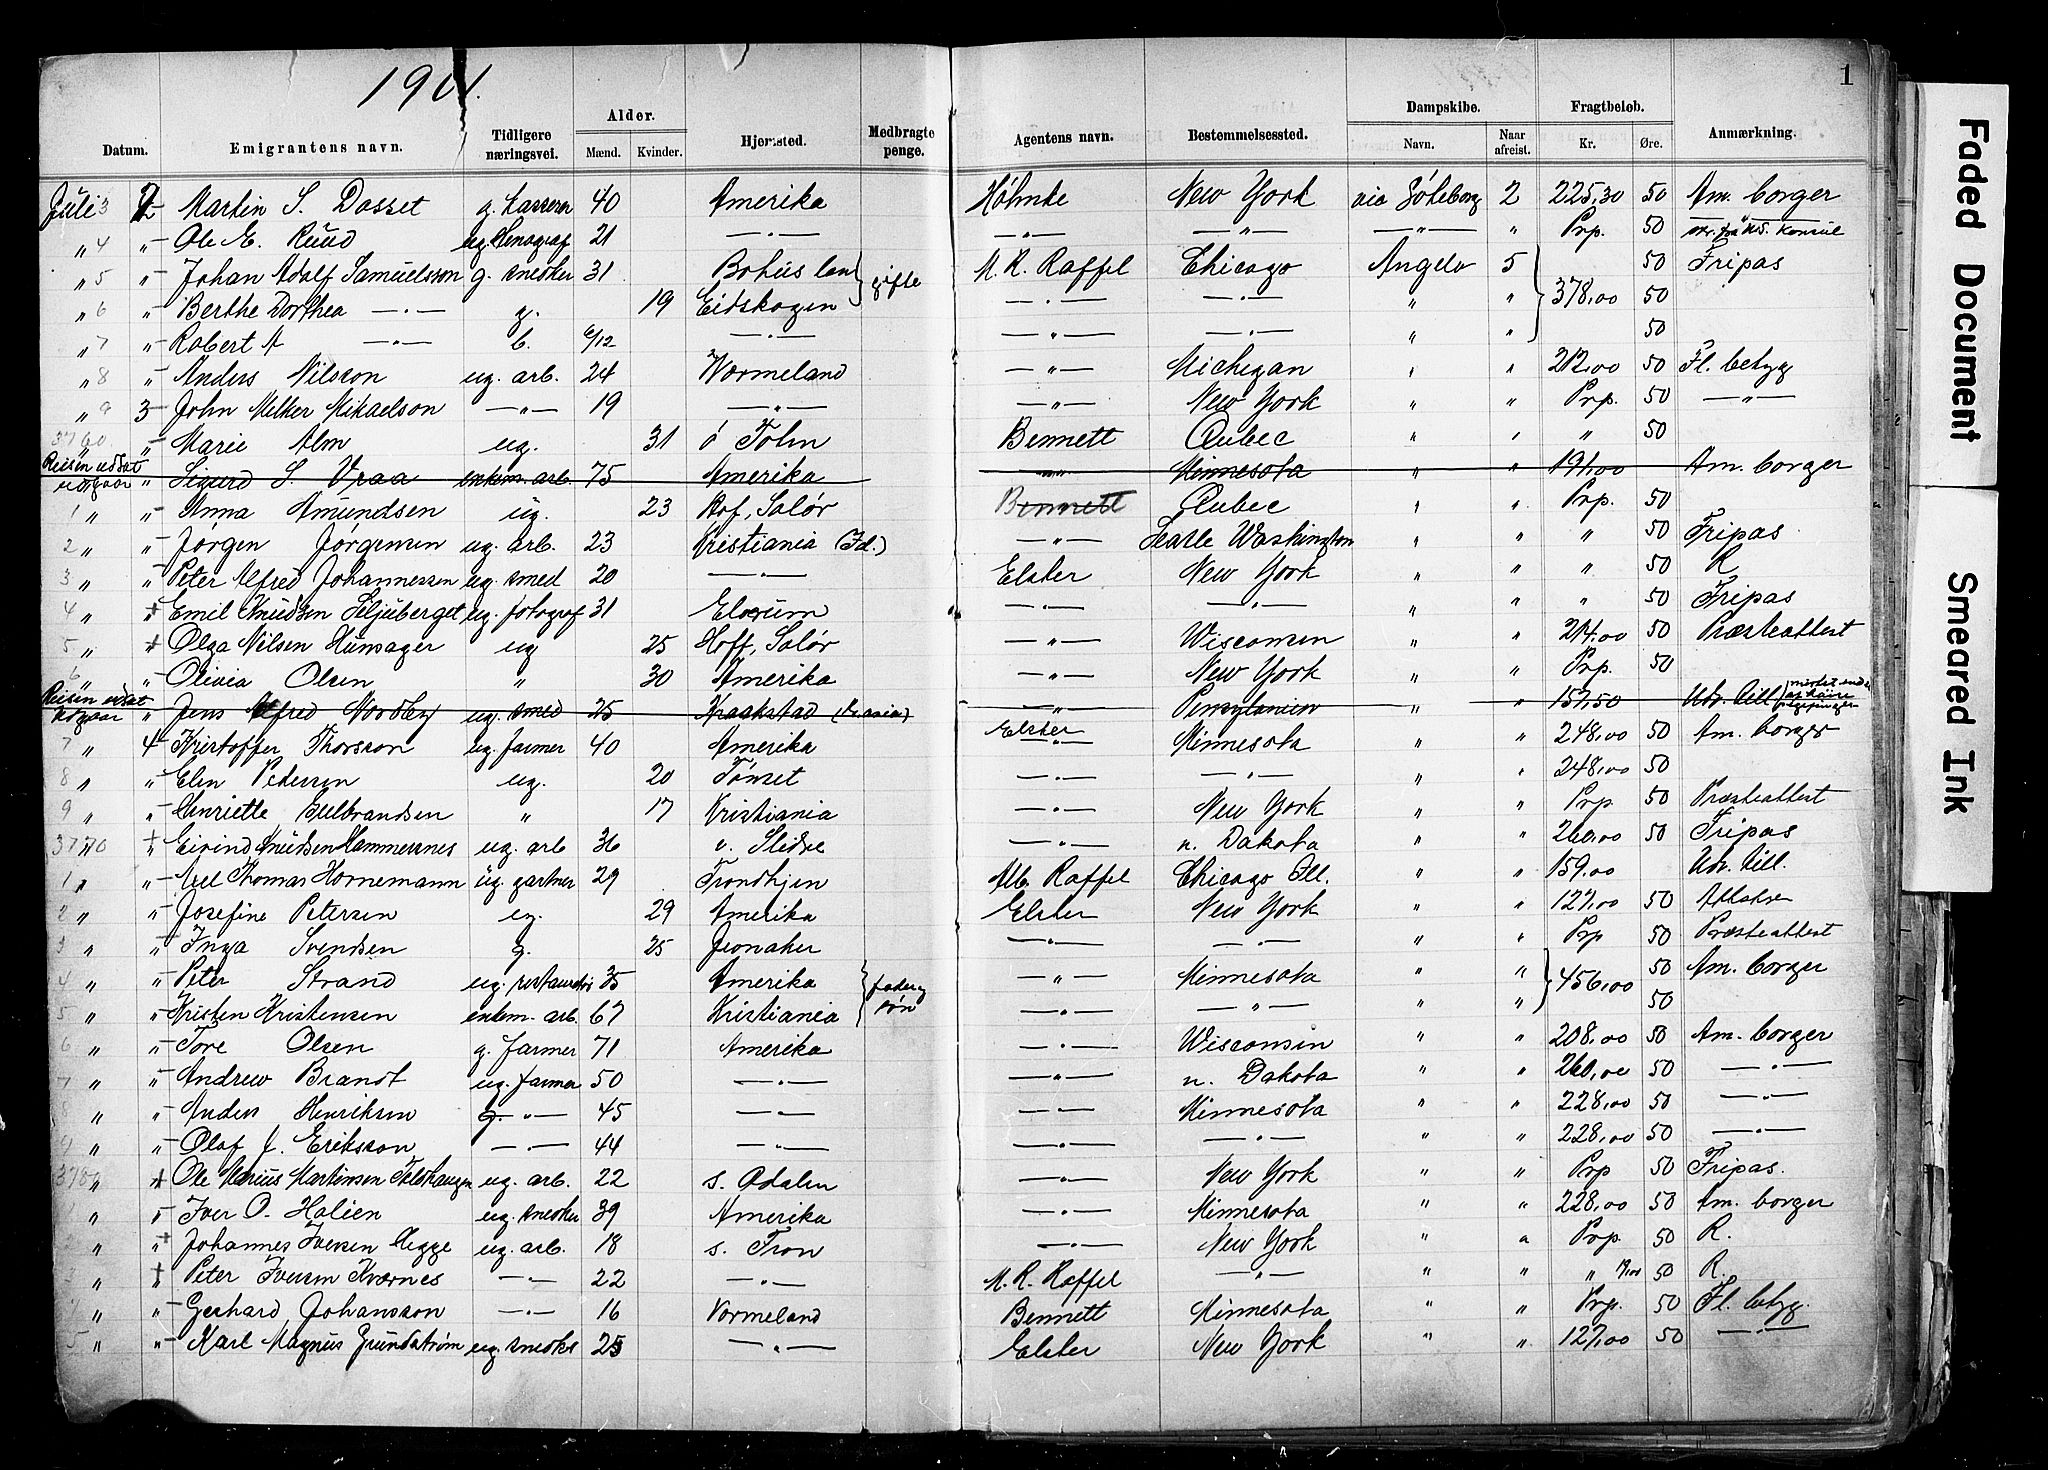 1901.
1
Datum. Emigrantens navn. Tidligere næringsvei. Alder. Mænd. Kvinder. Hjemsted. Medbragte penge. Agentens navn. Bestemmelsessted. Dampskibe. Navn. Naar afreist. Fragtbeløb. Kr. Øre. Anmærkning.
Juli 3 2 Martin S. Dosset g. 40 Amerika Höhnke New York via Göteborg 2 225,30 50 Am. borger
" 4 " Ole E. Ruud ug. 21 — " — — " — — " — — " — " Prp. 50 fra US. Konsul
" 5 " Johan Adolf Samuelsson g. snedker 31 Bohus len } gifte M. R. Raffel Chicago Angelo 5 50 Fripas
" 6 " Berthe Dorthea — " — g. 19 Eidskogen — " — — " — " " } 378,00 50
" 7 " Robert A — " — b. 6/12 — " — — " — — " — " " 50
" 8 " Anders Nilsson ug. arb. 24 Wormeland — " — Michegan " " 212,00 50 Fl. betyg
" 9 3 John Melker Mikaelson — " — 19 — " — — " — New York " " Prp. 50 — " —
3760 " " Marie Alm ug. 31 ö Tolm Bennett Qubec " " " 50
Reisen udsat udgaar " Sigurd S. Vraa enkem. arb. 75 Amerika — " — Minnesota " " 191,00 Am. borger
1 " " Anna Amundsen ug. 23 Hof, Solør Bennett Qubec " " Prp. 50
2 " " Jørgen Jørgensen ug. arb. 23 Kristiania (Id.) — " — Searle Washington " " " 50 Fripas
3 " " Peter Alfred Johannessen ug. smed 20 — " — Elster New York " " " 50 R
4 " + Emil Knudsen Siljuberget ug. fotograf 31 Elverum — " — — " — " " " 50 Fripas
5 " + Olga Nilsen Hunsager ug 25 Hoff, Solør — " — Wisconsin " " 214,00 50 Præsteattest
6 " " Olivia Olsen " 30 Amerika — " — New York " " Prp. 50
Reisen udsat udgaar " Jens Alfred Nordby ug. smed 25 Kraakstad — " — Pensylanien — " — " 157,50 Udv. till
7 " 4 Kristoffer Thorsson ug. farmer 40 Amerika Elster Minnesota " " 248,00 50 Am. borger
8 " " Elin Pedersen ug. 20 Tönset — " — — " — " " 248,00 50
9 " " Henriette Gulbrandsen " 17 Kristiania — " — New York " " Prp 50 Præsteattest
3770 " + Eivind Knudsen Hammersnes ug. arb 36 v. Slidre — " — n. Dakota " " 260,00 50 Fripas
1 " " Axel Thomas Hornemann ug. gartner 29 Trondhjem Alb. Raffel Chicago Ill. " " 159.00 Udv. till.
2 " " Josefine Petersen ug. 29 Amerika Elster New York " " 127,00 50
3 " " Inga Svendsen g. 25 Jevnaker — " — — " — " " Prp 50 Præsteattest
4 " " Peter Strand ug. 35 Amerika } fader og søn — " — Minnesota " " } 456,00 50 Am. borger
5 " " Kristen Kristensen enkem. arb. 67 Kristiania — " — — " — " " 50
6 " " Tore Olsen g. farmer 71 Amerika — " — Wisconsin " " 208,00 50 Am. borger
7 " " Andrew Brandt ug. farmer 50 — " — — " — n. Dakota " " 260,00 50 — " —
8 " " Anders Henriksen g. — " — 45 — " — — " — Minnesota " " 228,00 50 — " —
9 " " Olaf J. Eriksson — " — 44 — " — — " — — " — " " 228,00 50 — " —
378 " + Ole Marius Martinsen ug. arb. 22 s. Odalen — " — New York " " Prp 50 Fripas.
" " Iver O. Holien ug. snedker 39 Amerika — " — Minnesota " " 228,00 50 Am. borger
" + Johannes Iversen Hegge ug. arb. 18 s. Fron — " — New York " " Prp. 50 R.
" + Peter Iversen Kvernes — " — 22 — " — M. R. Raffel — " — " " " 50 R.
" " Gerhard Johansson — " — 16 Vormeland Bennett Minnesota " " Prp. 50 Fl. betyg.
5 " " Karl Magnus Grundström ug. snedker 25 — " — Elster New York " " 127,00 50 — " —
Faded Document
Smeared Ink